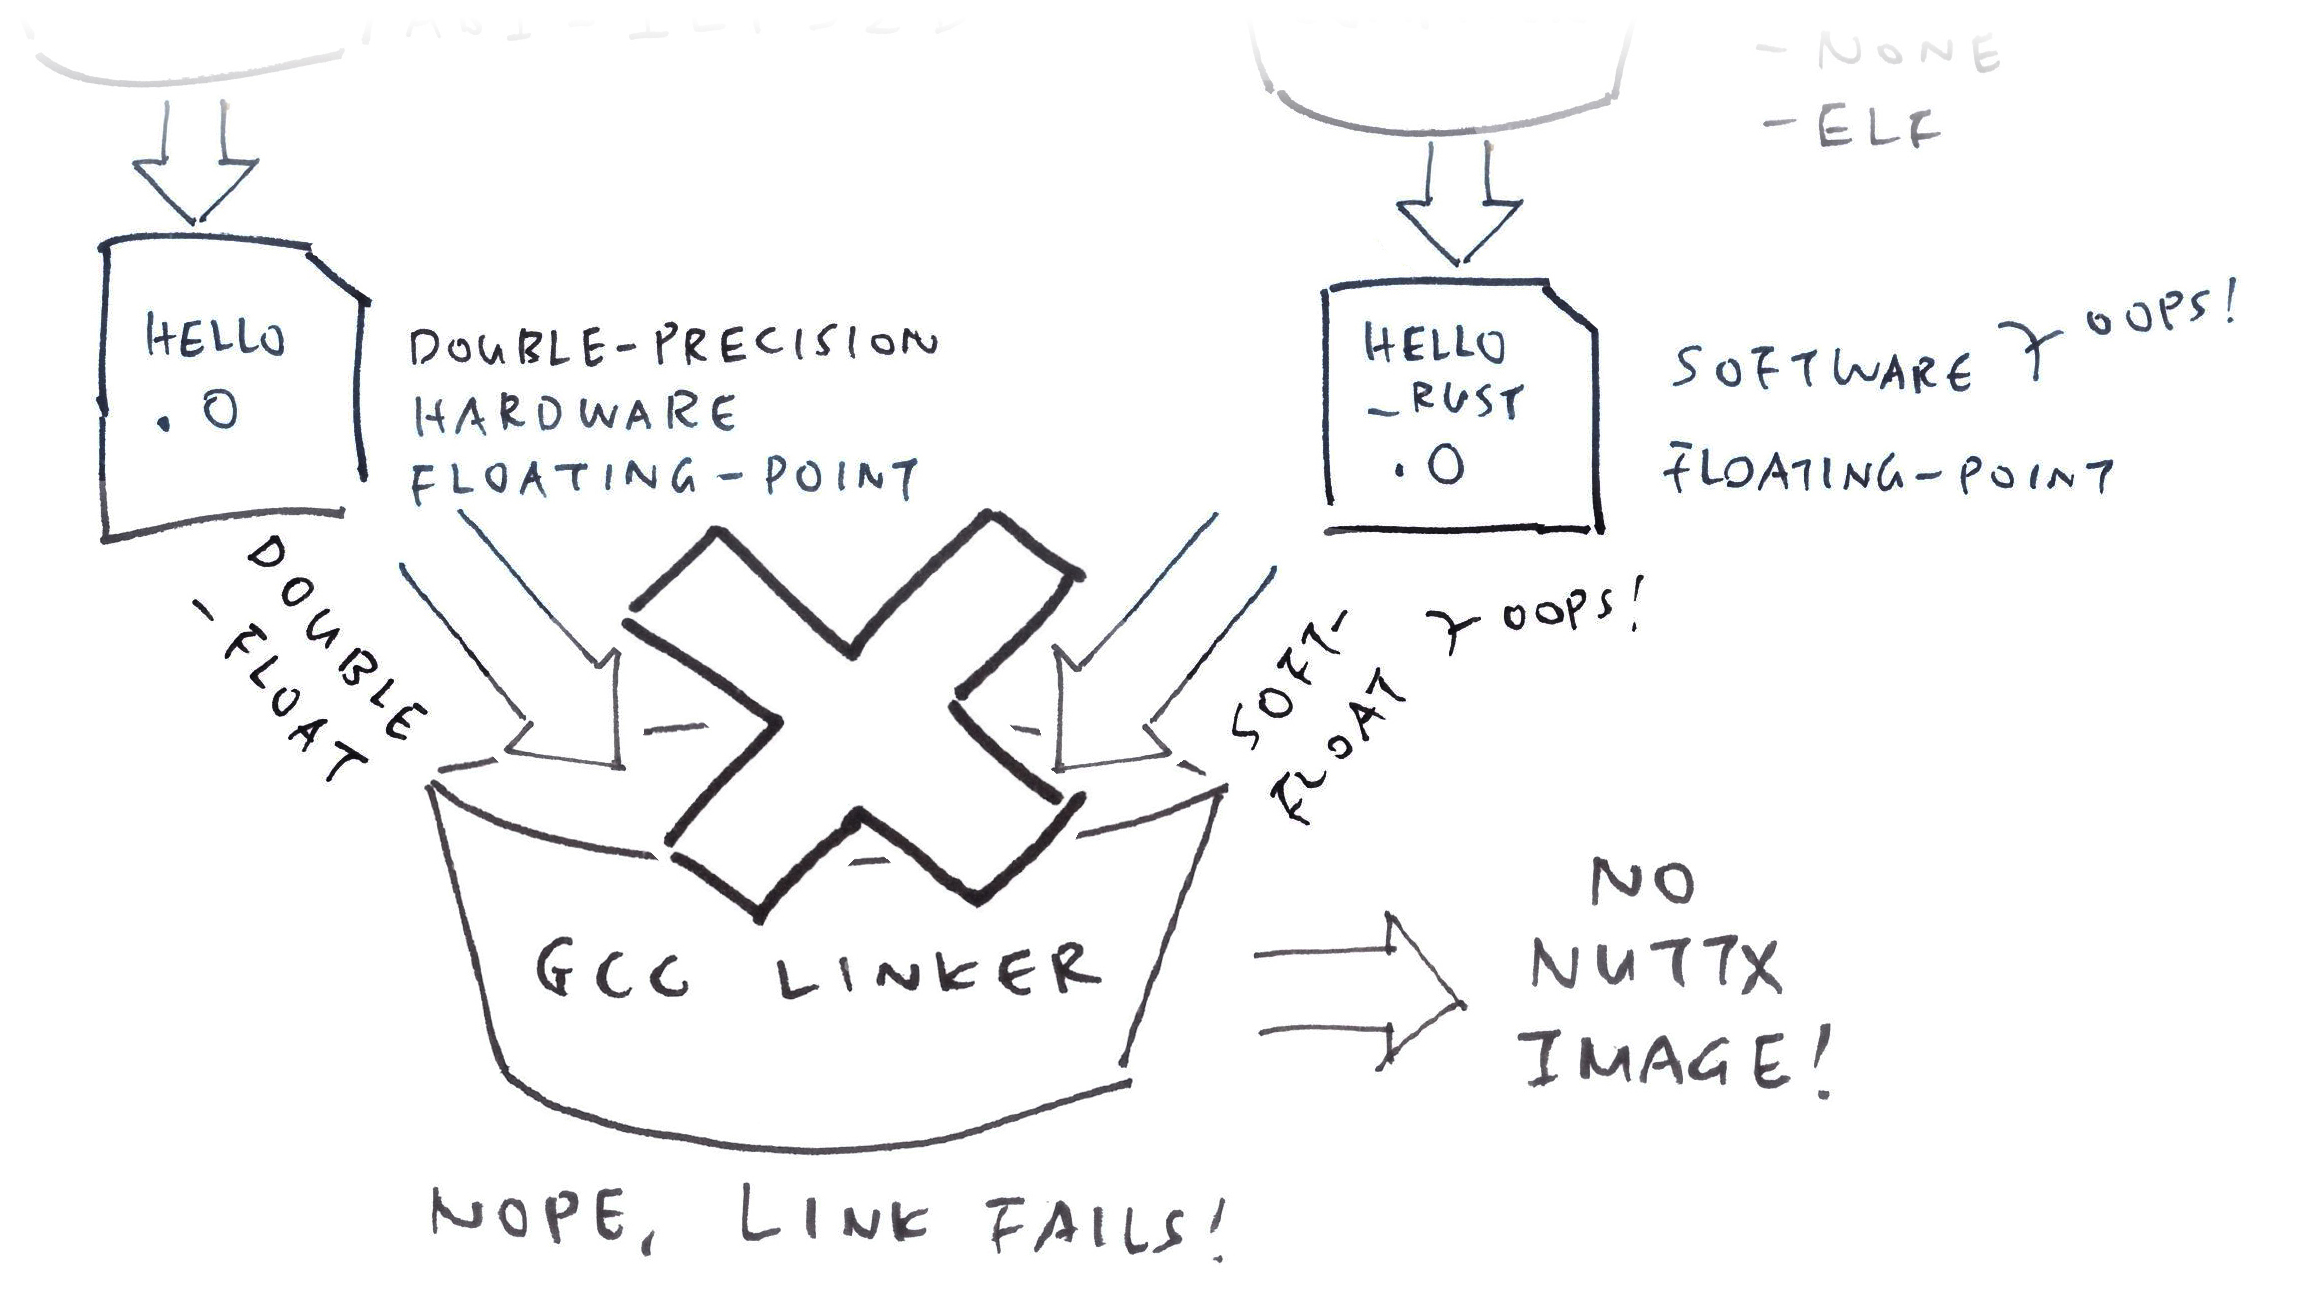 - NONE
- ELF
HELLO
.O
DOUBLE-PRECISION
HARDWARE
FLOATING-POINT
HELLO
_RUST
.O
SOFTWARE
OOPS!
FLOATING-POINT
DOUBLE
-FLOAT
SOFT-
FLOAT
OOPS!
GCC LINKER
NO
NUTTX
IMAGE!
NOPE, LINK FAILS!